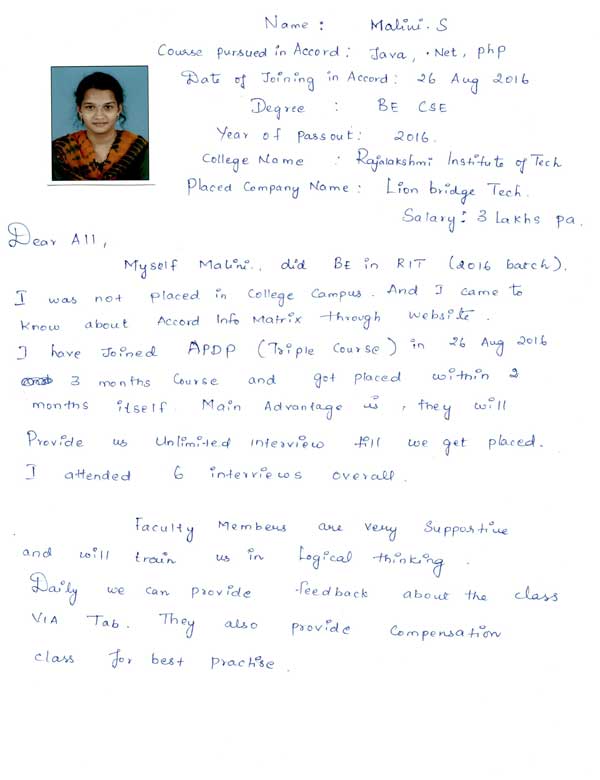 Name : Malini. S
Course pursued in Accord : Java, .Net, php
Date of Joining in Accord : 26 Aug 2016
Degree : BE CSE
Year of passout : 2016.
College Name : Rajalakshmi Institute of Tech
Placed Company Name : Lion bridge Tech.
Salary : 3 Lakhs pa.
Dear All,
Myself Malini., did BE in RIT (2016 batch).
I was not placed in College Campus. And I came to
know about Accord Info Matrix through website.
I have Joined APDP (Triple Course) in 26 Aug 2016
3 months Course and got placed within 2
months itself. Main Advantage is, they will
Provide us Unlimited interview till we get placed.
I attended 6 interviews overall.
Faculty Members are very Supportive
and will train us in Logical thinking.
Daily we can provide feedback about the class
VIA Tab. They also provide Compensation
class for best practise.